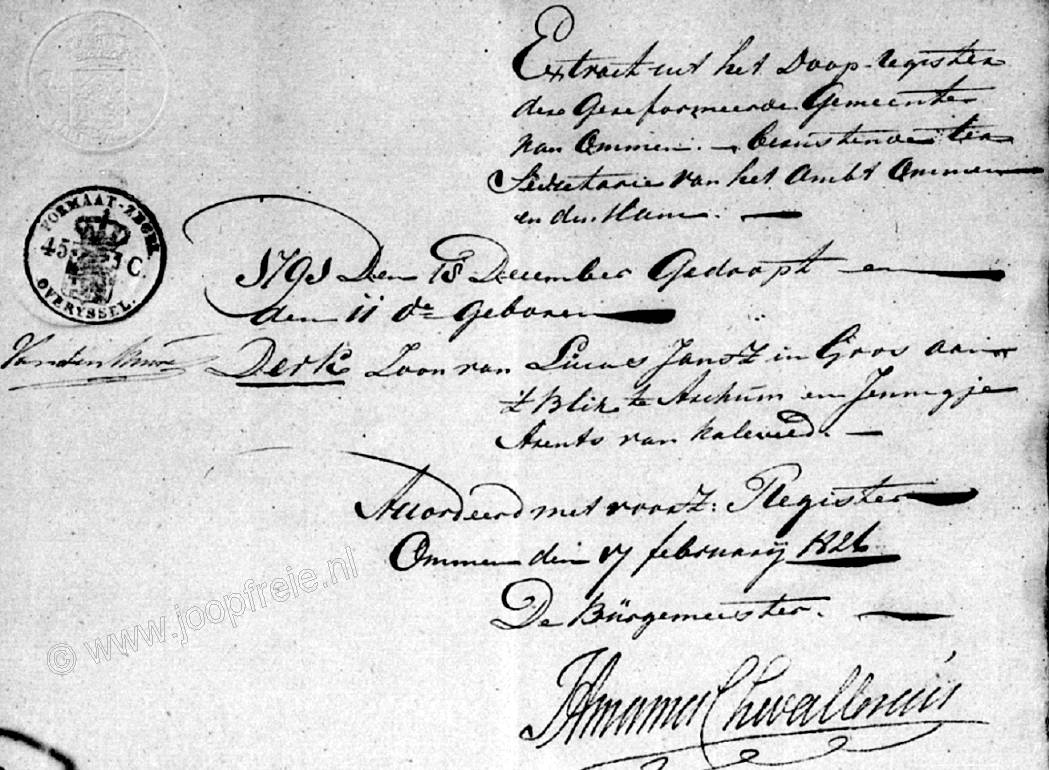 Extract uit het Doop-register
der Gereformeerde Gemeente
van Ommen. berustende ter
Secretarie van het Ambt Ommen
en den Ham.
FORMAAT-ZEGEL
45 C.
OVERYSSEL.
1791 Den 18 December Gedoopt en
den 11 de geboren
Derk Zoon van Lucas Jansz in Goos aan
't Blik te Archum en Jennigje
Arents van Kaleveld.
Accordeerd met voorsz: Register
Ommen den 17 februarij 1826
De Burgemeester.
Chevallerau
© www.joopfreie.nl